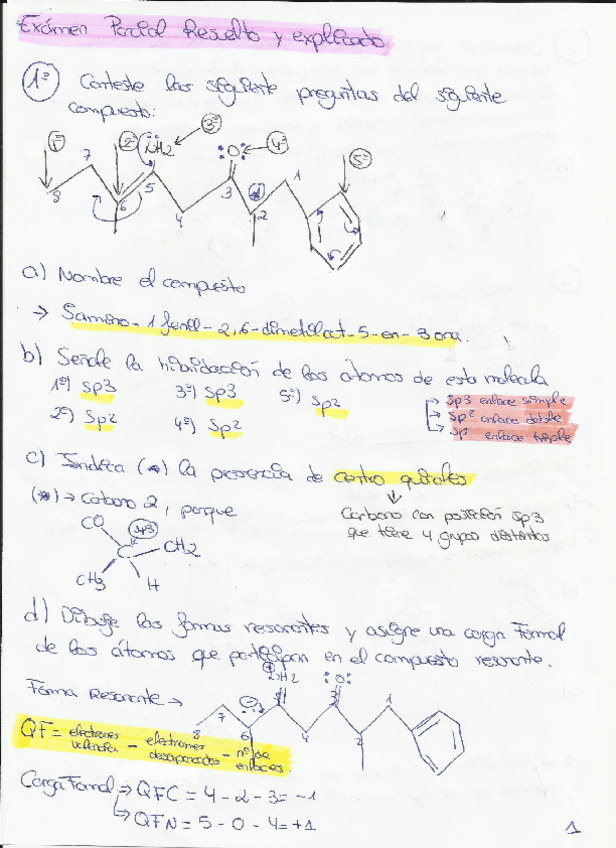 Exámen Parcial Resuelto y explicado
1º Conteste las siguiente preguntas del siguiente
compuesto:
1º 2º NH2 3º O 4º 5º
8 7 6 5 4 3 2 1
a) Nombre el compuesto
→ 5amino-1fenil-2,6-dimetiloct-5-en-3ona.
b) Señale la hibridación de los átomos de esta molécula
1º) sp3 3º) sp3 5º) sp2
2º) sp2 4º) sp2
→ sp3 enlace simple
→ sp2 enlace doble
→ sp enlace triple
c) Indica (*) la presencia de centro quirales
(*) → Carbono 2, porque
Carbono con posición sp3
que tiene 4 grupos distintos
CO sp3
C CH2
CH3 H
d) Dibuje las formas resonantes y asigne una carga Formal
de los átomos que participan en el compuesto resonante.
Forma Resonante →
NH2 O
8 7 6 5 4 3 2 1
QF = electrones valencia - electrones desapareados - nº de enlaces.
Carga Formal → QFC = 4 - 2 - 3 = -1
→ QFN = 5 - 0 - 4 = +1
1